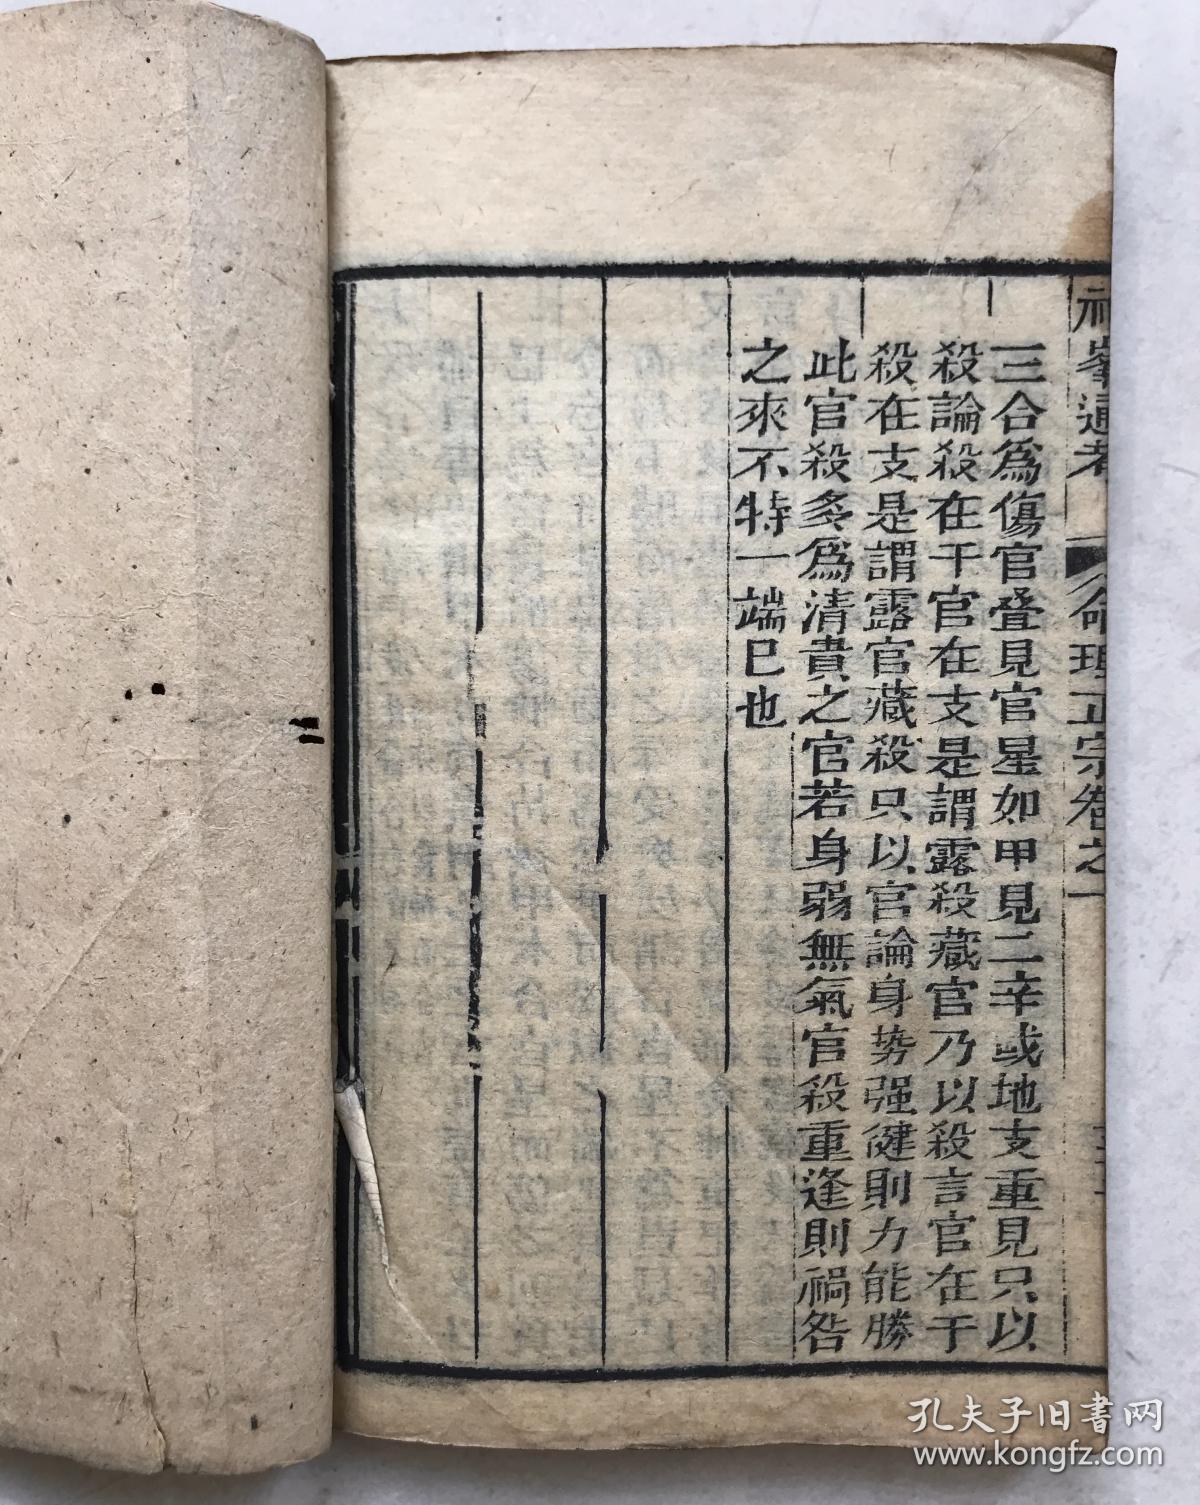 神峯通考 命理正宗卷之一
三合爲傷官叠見官星如甲見二辛或地支重見只以
殺論殺在干官在支是謂露殺藏官乃以殺言官在于
殺在支是謂露官藏殺只以官論身势强健則力能勝
此官殺多爲清貴之官若身弱無氣官殺重逢則禍咎
之來不特一端巳也
孔夫子旧書网
www.kongfz.com